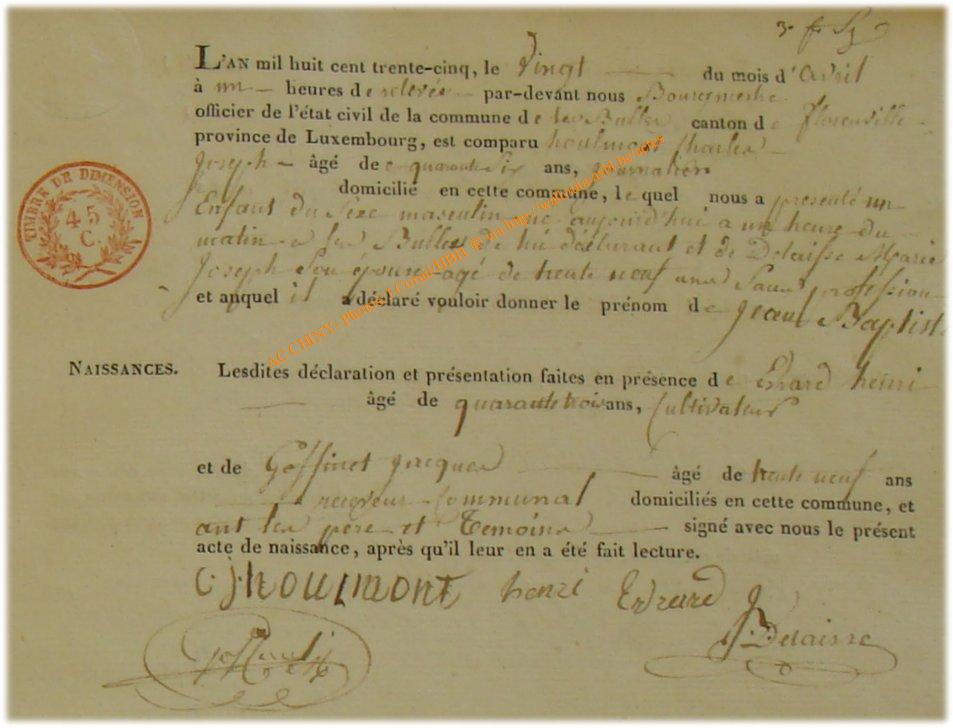 L'AN mil huit cent trente-cinq, le Vingt du mois d'Avril
à un heures de relevée par-devant nous Bourgmestre
officier de l'état civil de la commune de les Bulles canton de florenville
province de Luxembourg, est comparu houlmont Charles
Joseph âgé de quarante six ans, journalier
domicilié en cette commune, lequel nous a présenté un
Enfant du Sexe masculin né aujourd'hui a un heure du
matin a les Bulles de lui déclarant et de Delaisse Marie
Joseph Son épouse agé de trente neuf ans Sans profession
et auquel il a déclaré vouloir donner le prénom de Jean Baptiste
NAISSANCES. Lesdites déclaration et présentation faites en présence de Evrard henri
âgé de quarante trois ans, Cultivateur
et de Goffinet jacques âgé de trente neuf ans
receveur Communal domiciliés en cette commune, et
ont les père et Temoins signé avec nous le présent
acte de naissance, après qu'il leur en a été fait lecture.
C j houlmont henri Evrard
J Delaisse
TIMBRE DE DIMENSION
45
C.